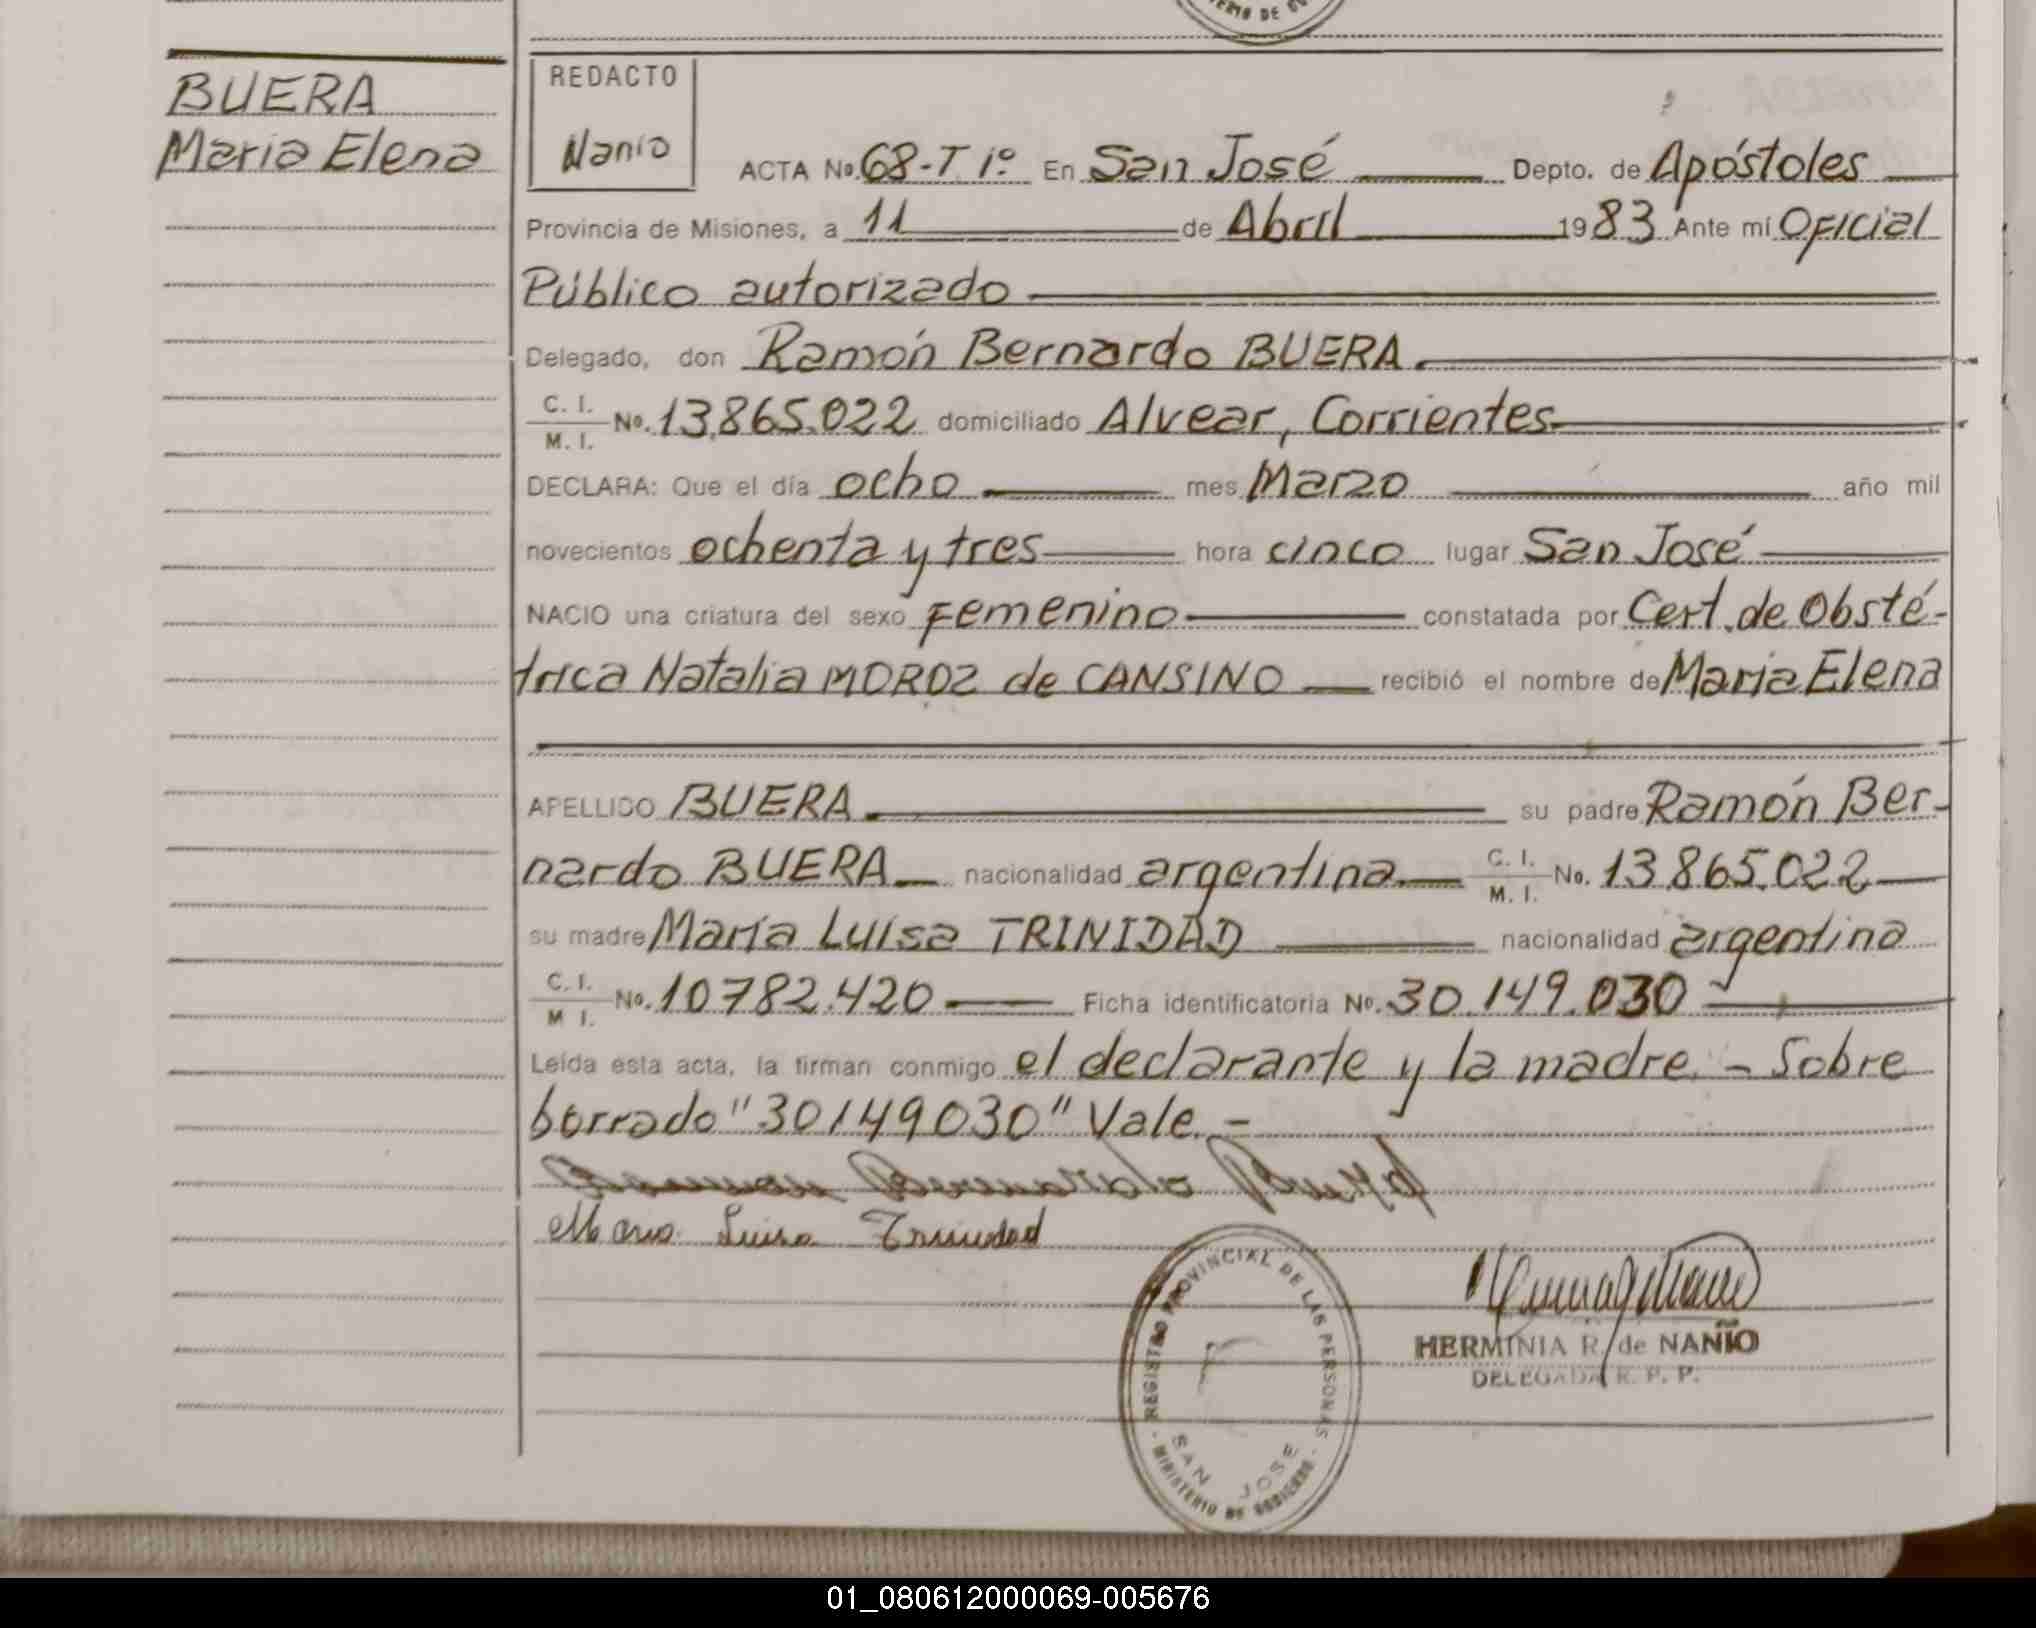 TERIO DE GO
BUERA
Maria Elena
REDACTO
Nanio
ACTA No. 68-T 1º. En San José Depto. de Apóstoles
Provincia de Misiones, a 11 de Abril 1983 Ante mí Oficial
Público autorizado
Delegado, don Ramón Bernardo BUERA
C. I. / M. I. No. 13.865.022 domiciliado Alvear, Corrientes
DECLARA: Que el día ocho mes Marzo año mil
novecientos ochenta y tres hora cinco lugar San José
NACIO una criatura del sexo Femenino constatada por Cert. de Obsté-
trica Natalia MOROZ de CANSINO recibió el nombre de Maria Elena
APELLIDO BUERA su padre Ramón Ber-
nardo BUERA nacionalidad argentina C. I. / M. I. No. 13.865.022
su madre María Luisa TRINIDAD nacionalidad argentina
C. I. / M I. No. 10782.420 Ficha identificatoria No. 30.149.030
Leída esta acta, la firman conmigo el declarante y la madre. - Sobre
borrado "30149030" Vale. -
Maria Luisa Trinidad
REGISTRO PROVINCIAL DE LAS PERSONAS
SAN JOSE
MINISTERIO DE GOBIERNO
HERMINIA R. de NANIO
DELEGADA R. P. P.
01_080612000069-005676